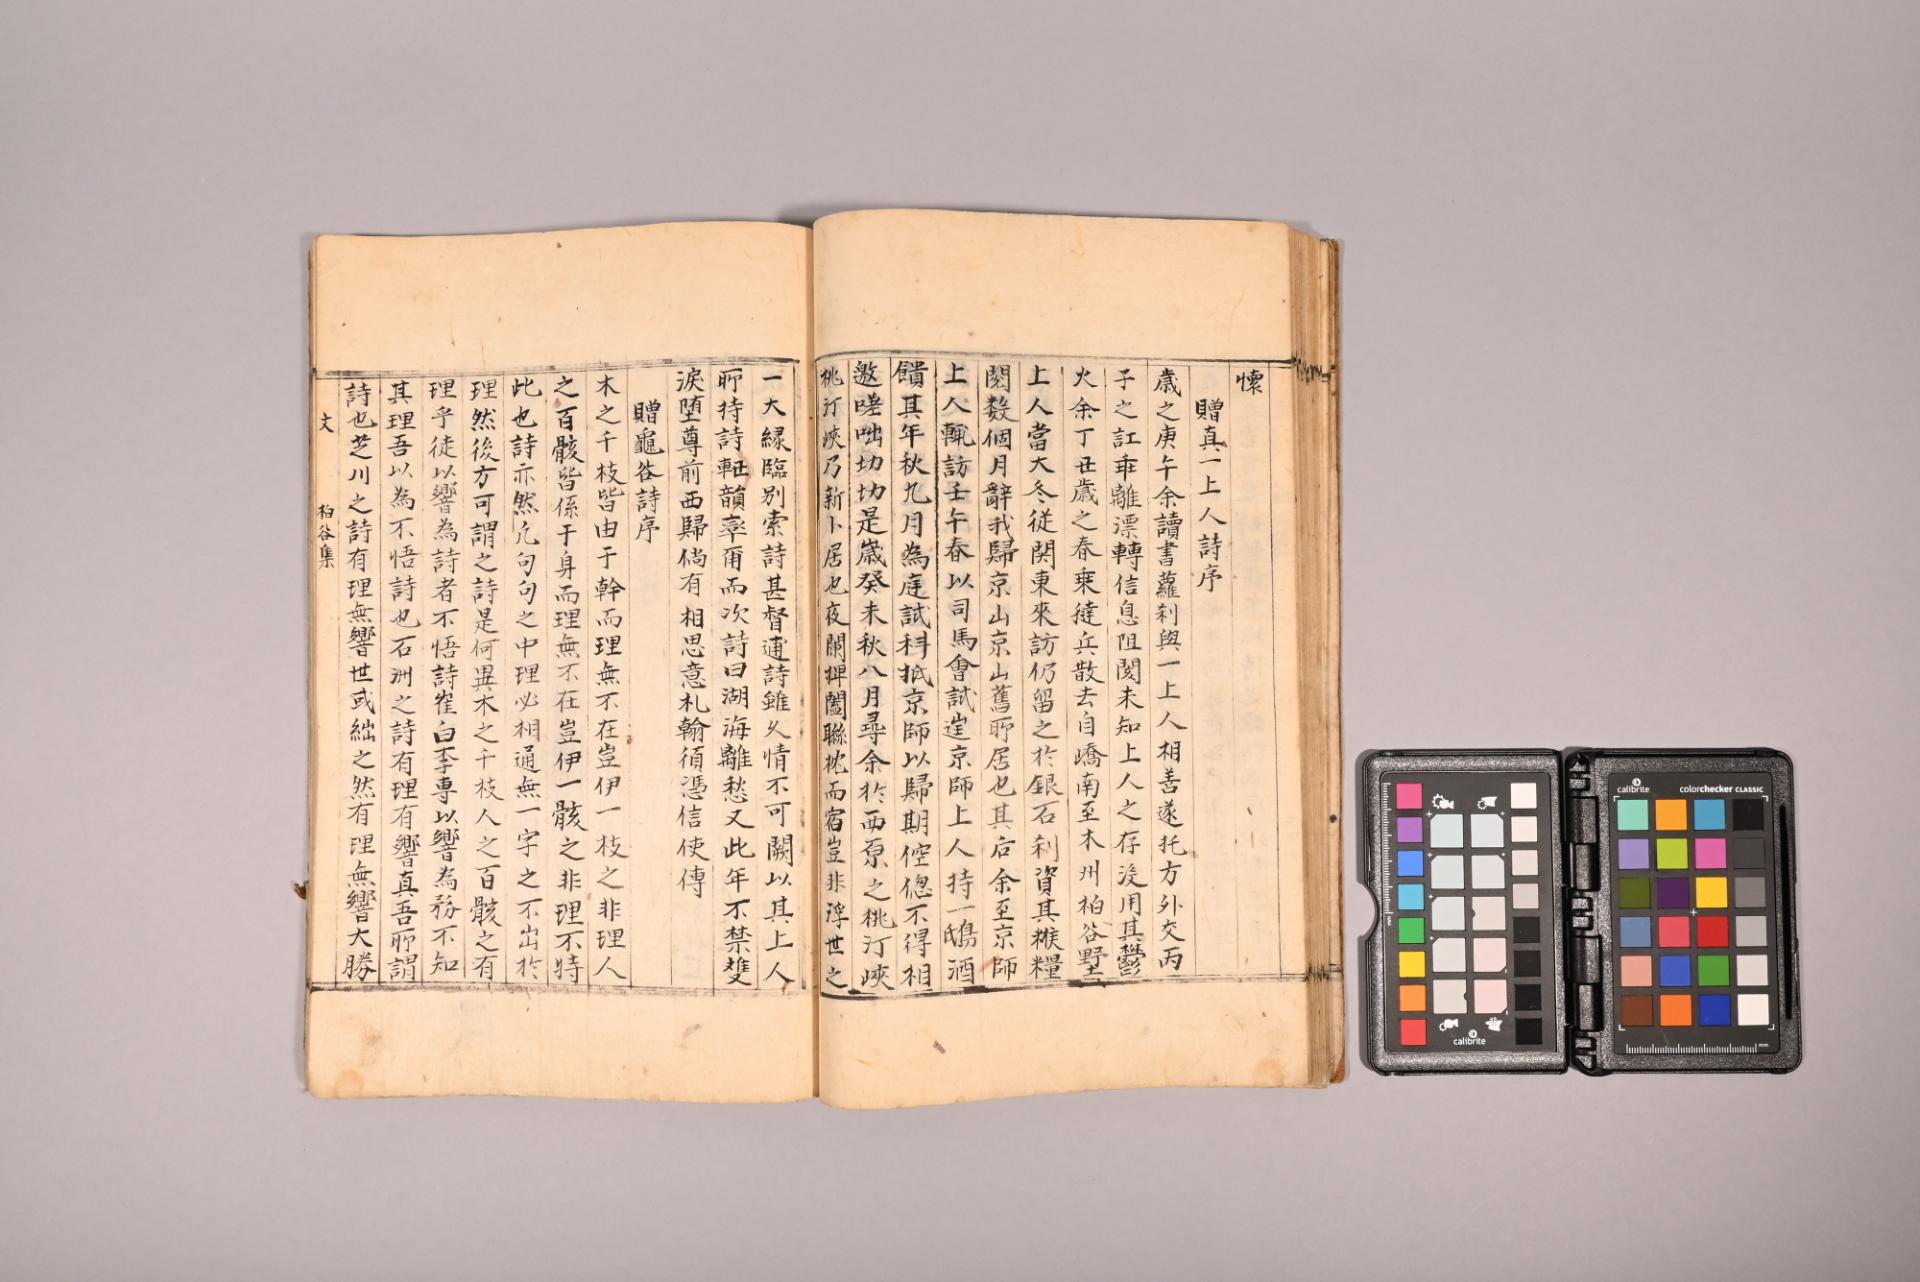 懷
贈真一上人詩序
歲之庚午余讀書蘿刹與一上人相善遂托方外交丙
子之訌乖離漂轉信息阻闋未知上人之存沒用其鬱
火余丁丑歲之春乗㺚兵散去自嶠南至木州栢谷墅
上人當大冬從関東來訪仍留之於銀石刹資其糇糧
閱数個月辭我歸京山京山舊所居也其后余至京師
上人輒訪壬午春以司馬會試逞京師上人持一鴟酒
饋其年秋九月為庭試科抵京師以歸期倥傯不得相
邀嗟咄切切是歲癸未秋八月尋余於西原之桃汀峽
桃汀峽乃新卜居也夜闌押闔聯枕而宿豈非浮世之
一大緣臨別索詩甚督逋詩雖久情不可闕以其上人
所持詩軸韻率爾而次詩曰湖海離愁又此年不禁雙
淚堕尊前西歸倘有相思意札翰須憑信使傳
贈龜谷詩序
木之千枝皆由于幹而理無不在豈伊一枝之非理人
之百骸皆係于身而理無不在豈伊一骸之非理不特
此也詩亦然凢句句之中理必相通無一字之不出於
理然後方可謂之詩是何異木之千枝人之百骸之有
理乎徒以響為詩者不悟詩崔白李專以響為務不知
其理吾以為不悟詩也石洲之詩有理有響真吾所謂
詩也芝川之詩有理無響世或絀之然有理無響大勝
文 栢谷集
calibrite
calibrite colorchecker CLASSIC
mm